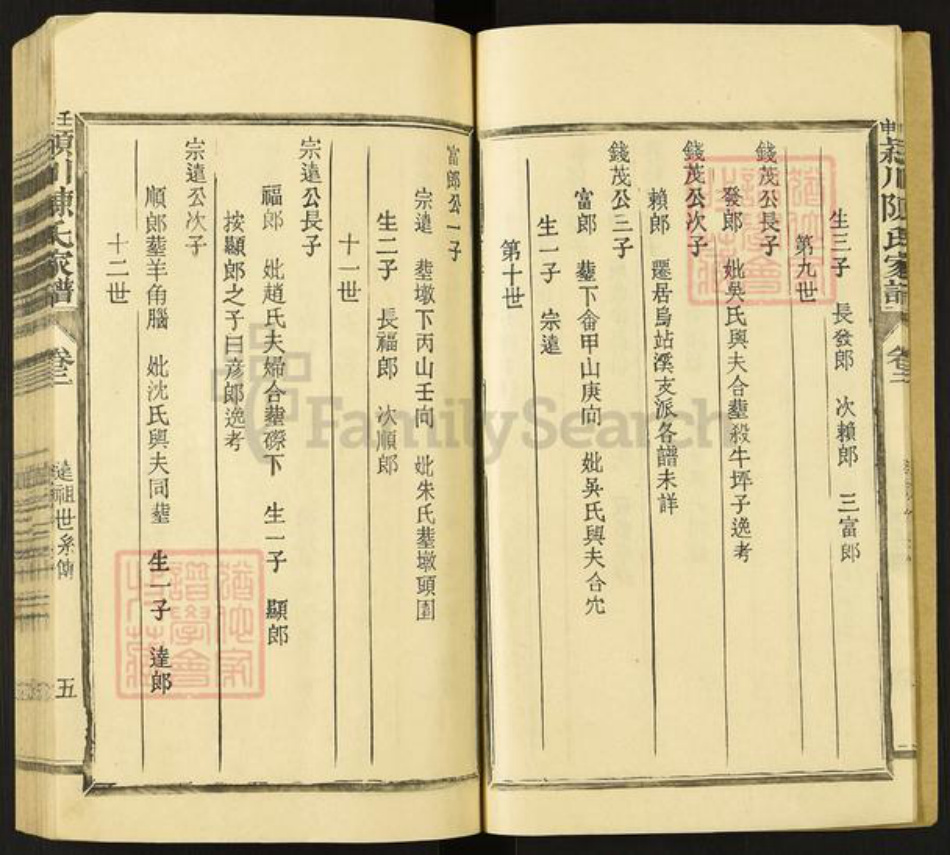 潁川陳氏家譜
卷二
生三子 長發郎 次賴郎 三富郎
第九世
錢茂公長子
發郎 妣吳氏與夫合塟殺牛坪子逸考
錢茂公次子
賴郎 遷居烏站溪支派各譜未詳
錢茂公三子
富郎 塟下畲甲山庚向 妣吳氏與夫合穴
生一子 宗遠
第十世
富郎公一子
宗遠 塟墩下丙山壬向 妣朱氏塟墩頭園
生二子 長福郎 次順郎
十一世
宗遠公長子
福郎 妣趙氏夫婦合塟磜下 生一子 顯郎
按顯郎之子曰彦郎逸考
宗遠公次子
順郎塟羊角腦 妣沈氏與夫同塟 生一子 達郎
十二世
潁川陳氏家譜
卷二
達祖世系傳
五
FamilySearch